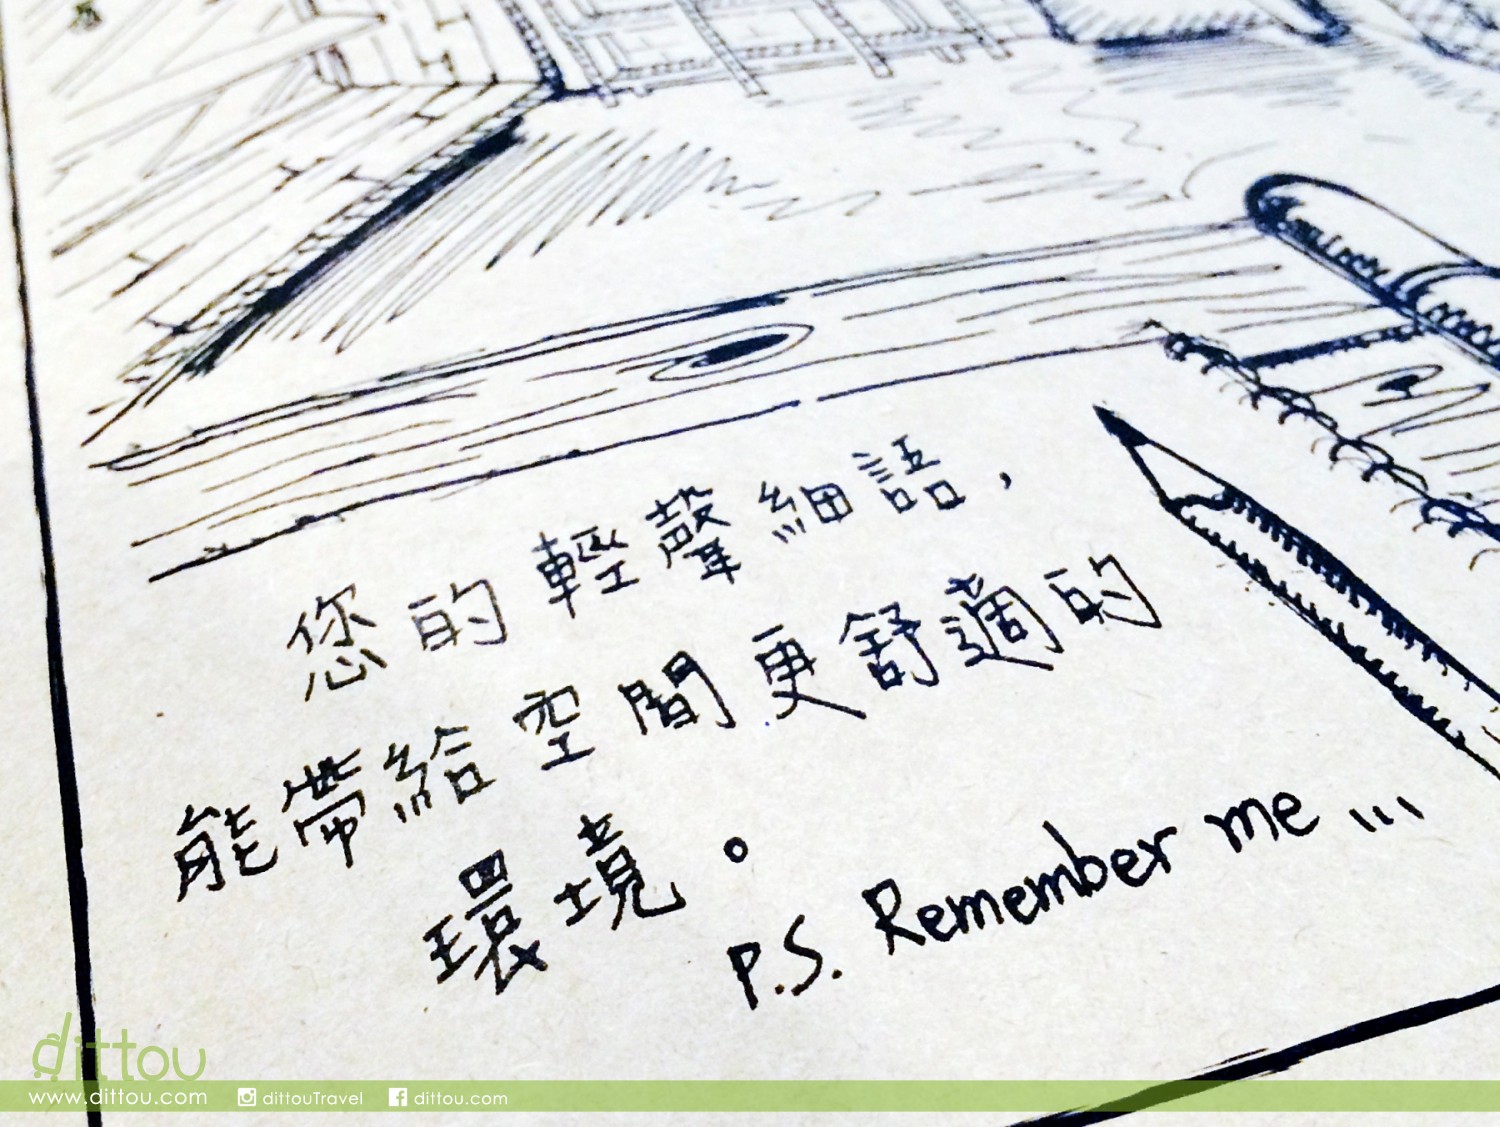 您的輕聲細語，
能帶給空間更舒適的
環境。
P.S. Remember me...
dittou
www.dittou.com dittouTravel dittou.com